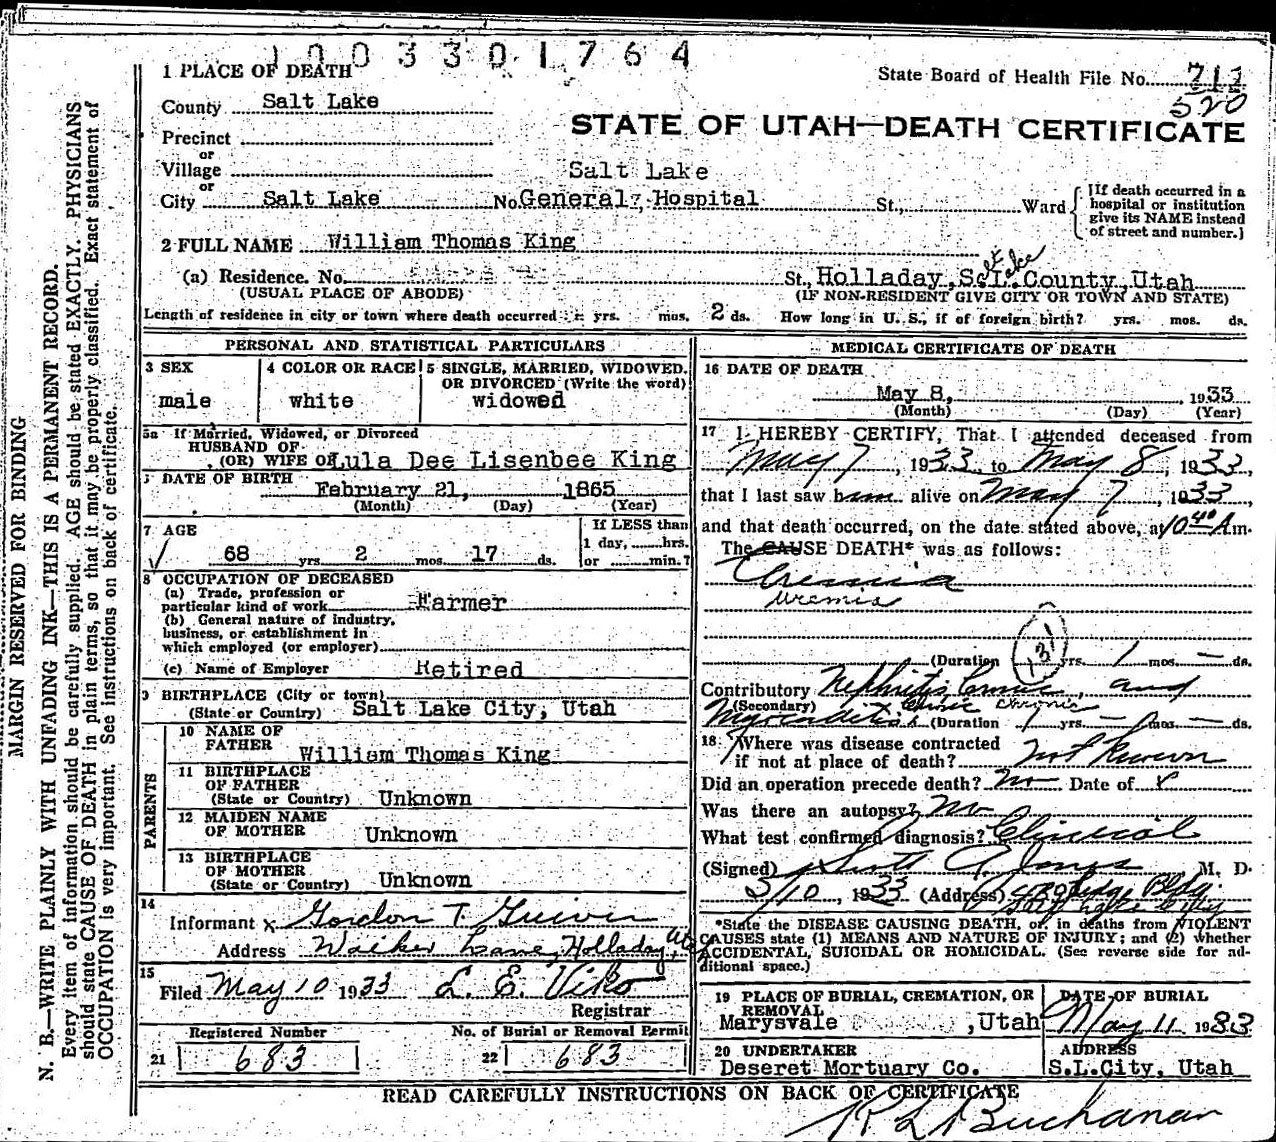 1003301764
1 PLACE OF DEATH
State Board of Health File No. 712
520
County Salt Lake
STATE OF UTAH—DEATH CERTIFICATE
Precinct
or
Village
Salt Lake
or
City Salt Lake No. General Hospital St., Ward
[If death occurred in a hospital or institution give its NAME instead of street and number.]
2 FULL NAME William Thomas King
(a) Residence. No. St., Holladay, S. L. County, Utah
Salt Lake
(USUAL PLACE OF ABODE) (IF NON-RESIDENT GIVE CITY OR TOWN AND STATE)
Length of residence in city or town where death occurred yrs. mos. 2 ds. How long in U. S., if of foreign birth? yrs. mos. ds.
PERSONAL AND STATISTICAL PARTICULARS
3 SEX
male
4 COLOR OR RACE
white
5 SINGLE, MARRIED, WIDOWED, OR DIVORCED (Write the word)
widowed
5a If Married, Widowed, or Divorced
HUSBAND OF
(OR) WIFE OF Lula Dee Lisenbee King
DATE OF BIRTH February 21, 1865
(Month) (Day) (Year)
7 AGE
68 yrs. 2 mos. 17 ds.
If LESS than 1 day, hrs. or min.?
8 OCCUPATION OF DECEASED
(a) Trade, profession or
particular kind of work Farmer
(b) General nature of industry,
business, or establishment in
which employed (or employer)
(c) Name of Employer Retired
9 BIRTHPLACE (City or town)
(State or Country) Salt Lake City, Utah
PARENTS
10 NAME OF
FATHER William Thomas King
11 BIRTHPLACE
OF FATHER
(State or Country) Unknown
12 MAIDEN NAME
OF MOTHER Unknown
13 BIRTHPLACE
OF MOTHER
(State or Country) Unknown
14
Informant x Gordon T.
Address Walker Lane, Holladay, Utah
15
Filed May 10 1933 L. E. Viko
Registrar
Registered Number
21 683
No. of Burial or Removal Permit
22 683
MEDICAL CERTIFICATE OF DEATH
16 DATE OF DEATH
May 8, 1933
(Month) (Day) (Year)
17 I HEREBY CERTIFY, That I attended deceased from
May 7, 1933 to May 8, 1933,
that I last saw him alive on May 7, 1933,
and that death occurred, on the date stated above, at 10 40 A m.
The CAUSE DEATH* was as follows:
Uremia
uremia
(Duration yrs. 1 mos. — ds.
131
Contributory Nephritis, Chronic, and
(Secondary) chronic
Myocarditis (Duration 1 yrs. — mos. — ds.
18 Where was disease contracted
if not at place of death? not known
Did an operation precede death? No Date of x
Was there an autopsy? No
What test confirmed diagnosis? Clinical
(Signed) A. Jones M. D.
5/10, 1933 (Address) Bldg.
Salt Lake City
*State the DISEASE CAUSING DEATH, or, in deaths from VIOLENT
CAUSES state (1) MEANS AND NATURE OF INJURY; and (2) whether
ACCIDENTAL, SUICIDAL OR HOMICIDAL. (See reverse side for ad-
ditional space.)
19 PLACE OF BURIAL, CREMATION, OR
REMOVAL
Marysvale, Utah
DATE OF BURIAL
May 11 1933
20 UNDERTAKER
Deseret Mortuary Co.
ADDRESS
S.L.City, Utah
READ CAREFULLY INSTRUCTIONS ON BACK OF CERTIFICATE
Buchanan
MARGIN RESERVED FOR BINDING
N. B.—WRITE PLAINLY WITH UNFADING INK—THIS IS A PERMANENT RECORD.
Every item of information should be carefully supplied. AGE should be stated EXACTLY. PHYSICIANS
should state CAUSE OF DEATH in plain terms, so that it may be properly classified. Exact statement of
OCCUPATION is very important. See instructions on back of certificate.